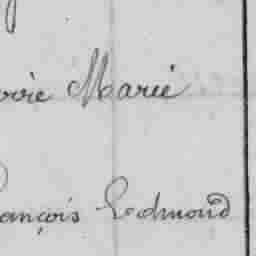 Marie
ançois Edmond